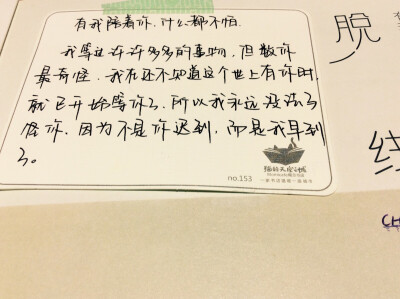 有我陪着你,什么都不怕.
我等过许许多多的事物,但数你
最奇怪.我在还不知道这个世上有你时,
就已开始等你了.所以我永远没法了
怪你.因为不是你迟到,而是我早到
了。
猫的天空之城
no.153
脱